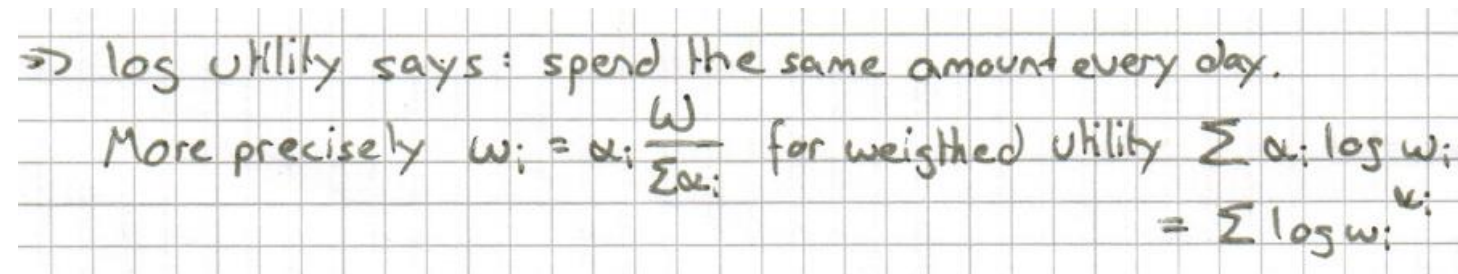 => log utility says: spend the same amount every day.
More precisely ω_i = α_i W/Σα_i for weigthed utility Σ α_i log ω_i
= Σ log ω_i^α_i